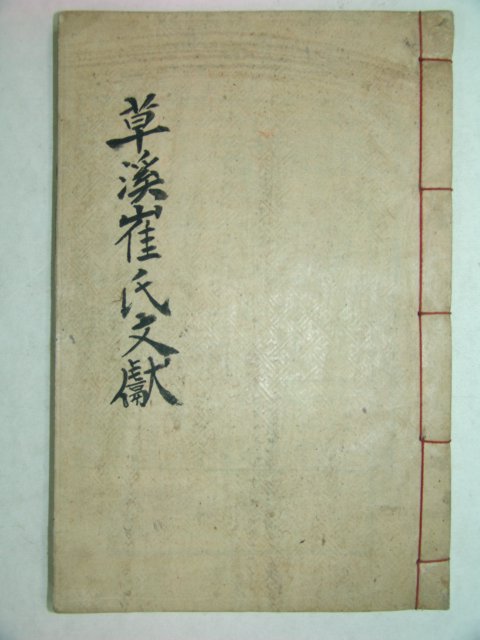 草溪崔氏文獻